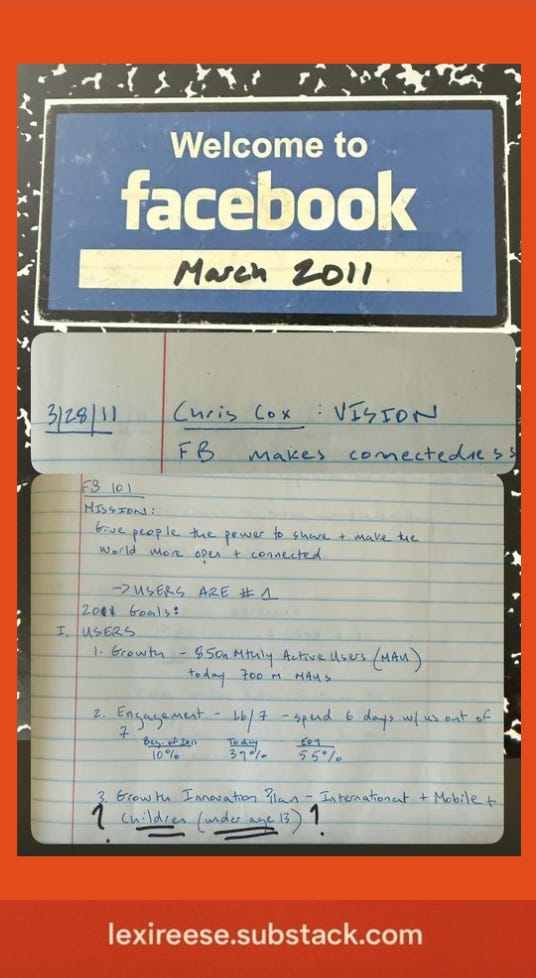 Welcome to
facebook
March 2011
3/28/11 Chris Cox : VISION
FB makes connectedness
FB 101
MISSION:
Give people the power to share + make the
world more open + connected.
→ USERS ARE # 1
2011 Goals:
I. USERS
1. Growth - 850m Mthly Active Users (MAU)
today 700 M MAUs
2. Engagement - L6/7 - spend 6 days w/ us out of
7
Beg. of 2011 Today EOY
10% 39% 55%
3. Growth Innovation Plan - International + Mobile +
? Children (under age 13) ?
lexireese.substack.com